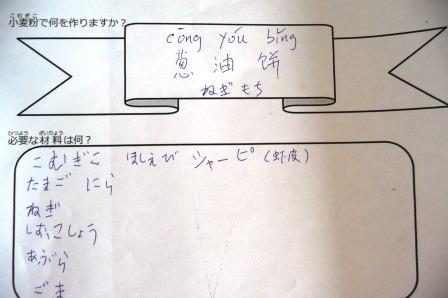 小麦粉で何を作りますか？
cōng yóu bǐng
葱油饼
ねぎもち
必要な材料は何？
こむぎこ ほしえび シャーピ（虾皮）
たまご にら
ねぎ
しおこしょう
あぶら
ごま